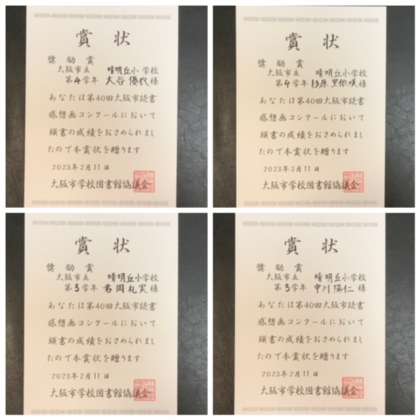 賞状
奨励賞
大阪市立 晴明丘小学校
第4学年 大谷 様
あなたは第40回大阪市読書
感想画コンクールにおいて
頭書の成績をおさめられまし
たので本賞状を贈ります
2023年2月11日
大阪市学校図書館協議会
賞状
奨励賞
大阪市立 晴明丘小学校
第4学年 杉原 様
あなたは第40回大阪市読書
感想画コンクールにおいて
頭書の成績をおさめられまし
たので本賞状を贈ります
2023年2月11日
大阪市学校図書館協議会
賞状
奨励賞
大阪市立 晴明丘小学校
第3学年 様
あなたは第40回大阪市読書
感想画コンクールにおいて
頭書の成績をおさめられまし
たので本賞状を贈ります
2023年2月11日
大阪市学校図書館協議会
賞状
奨励賞
大阪市立 晴明丘小学校
第3学年 中川 陽仁 様
あなたは第40回大阪市読書
感想画コンクールにおいて
頭書の成績をおさめられまし
たので本賞状を贈ります
2023年2月11日
大阪市学校図書館協議会